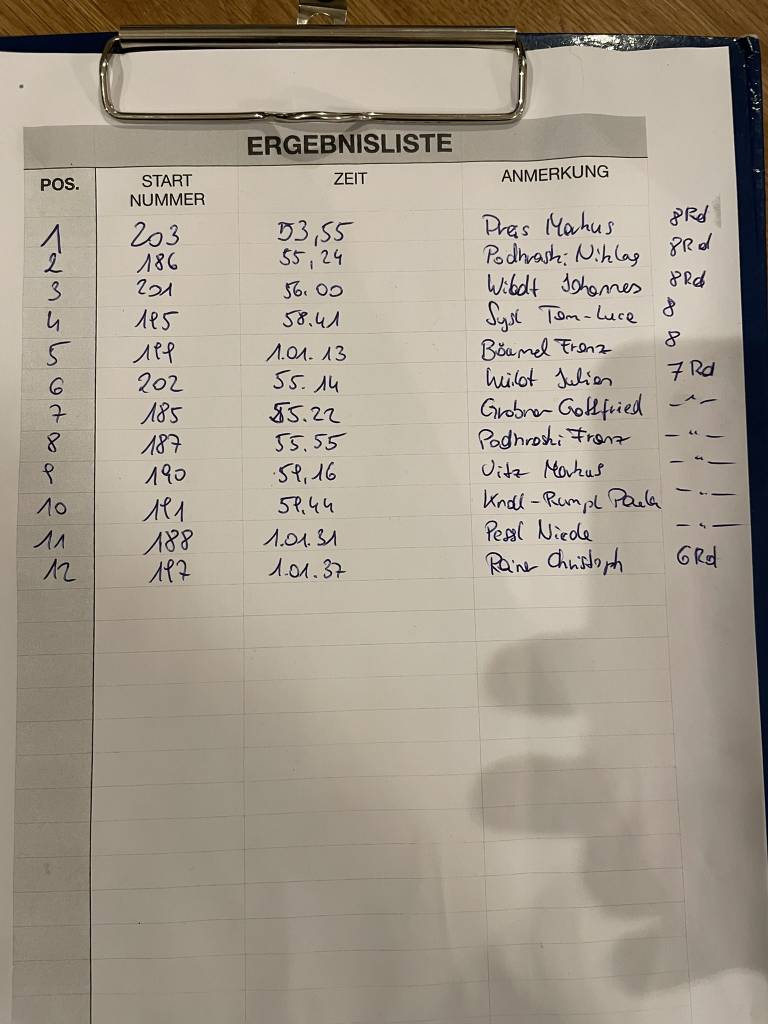 ERGEBNISLISTE
POS. START NUMMER ZEIT ANMERKUNG
1 203 53,55 Preis Markus 8Rd
2 186 55,24 Podhraski Niklas 8Rd
3 201 56.00 Johannes 8Rd
4 195 58.41 Sysl Tom-Luca 8
5 199 1.01.13 Bäumel Franz 8
6 202 55.14 Julian 7 Rd
7 185 55.22 Grabner Gottfried -"-
8 187 55.55 Podhraski Franz -"-
9 190 59,16 Vitz Markus -"-
10 191 59,44 Knoll-Rumpl Paula -"-
11 188 1.01.31 Pessl -"-
12 197 1.01.37 Rainer Christoph 6Rd